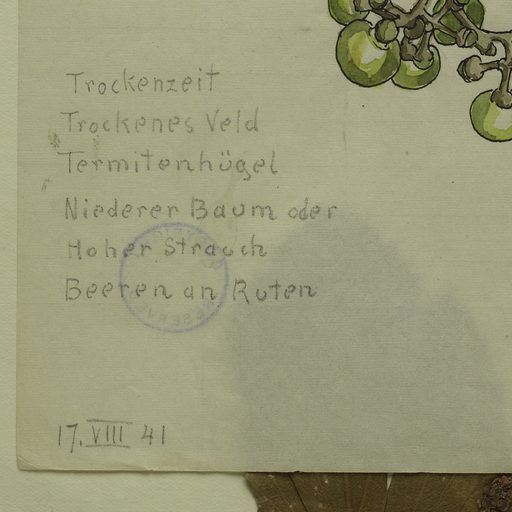 Trockenzeit
Trockenes Veld
Termitenhügel
Niederer Baum oder
Hoher Strauch
Beeren an Ruten
17. VIII 41